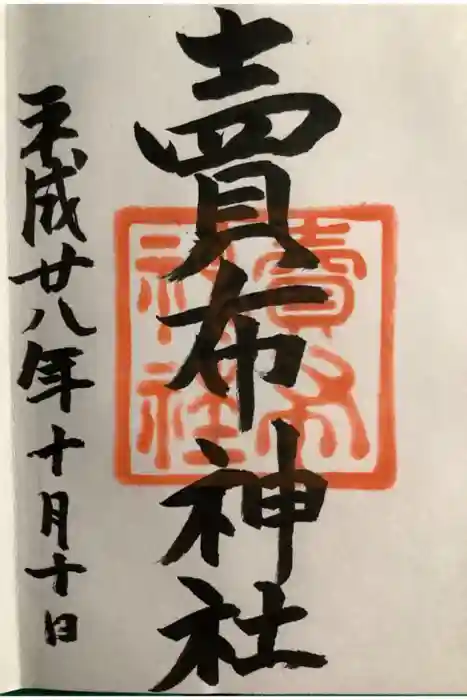 賣布神社
賣布
神社
平成廿八年十月十日